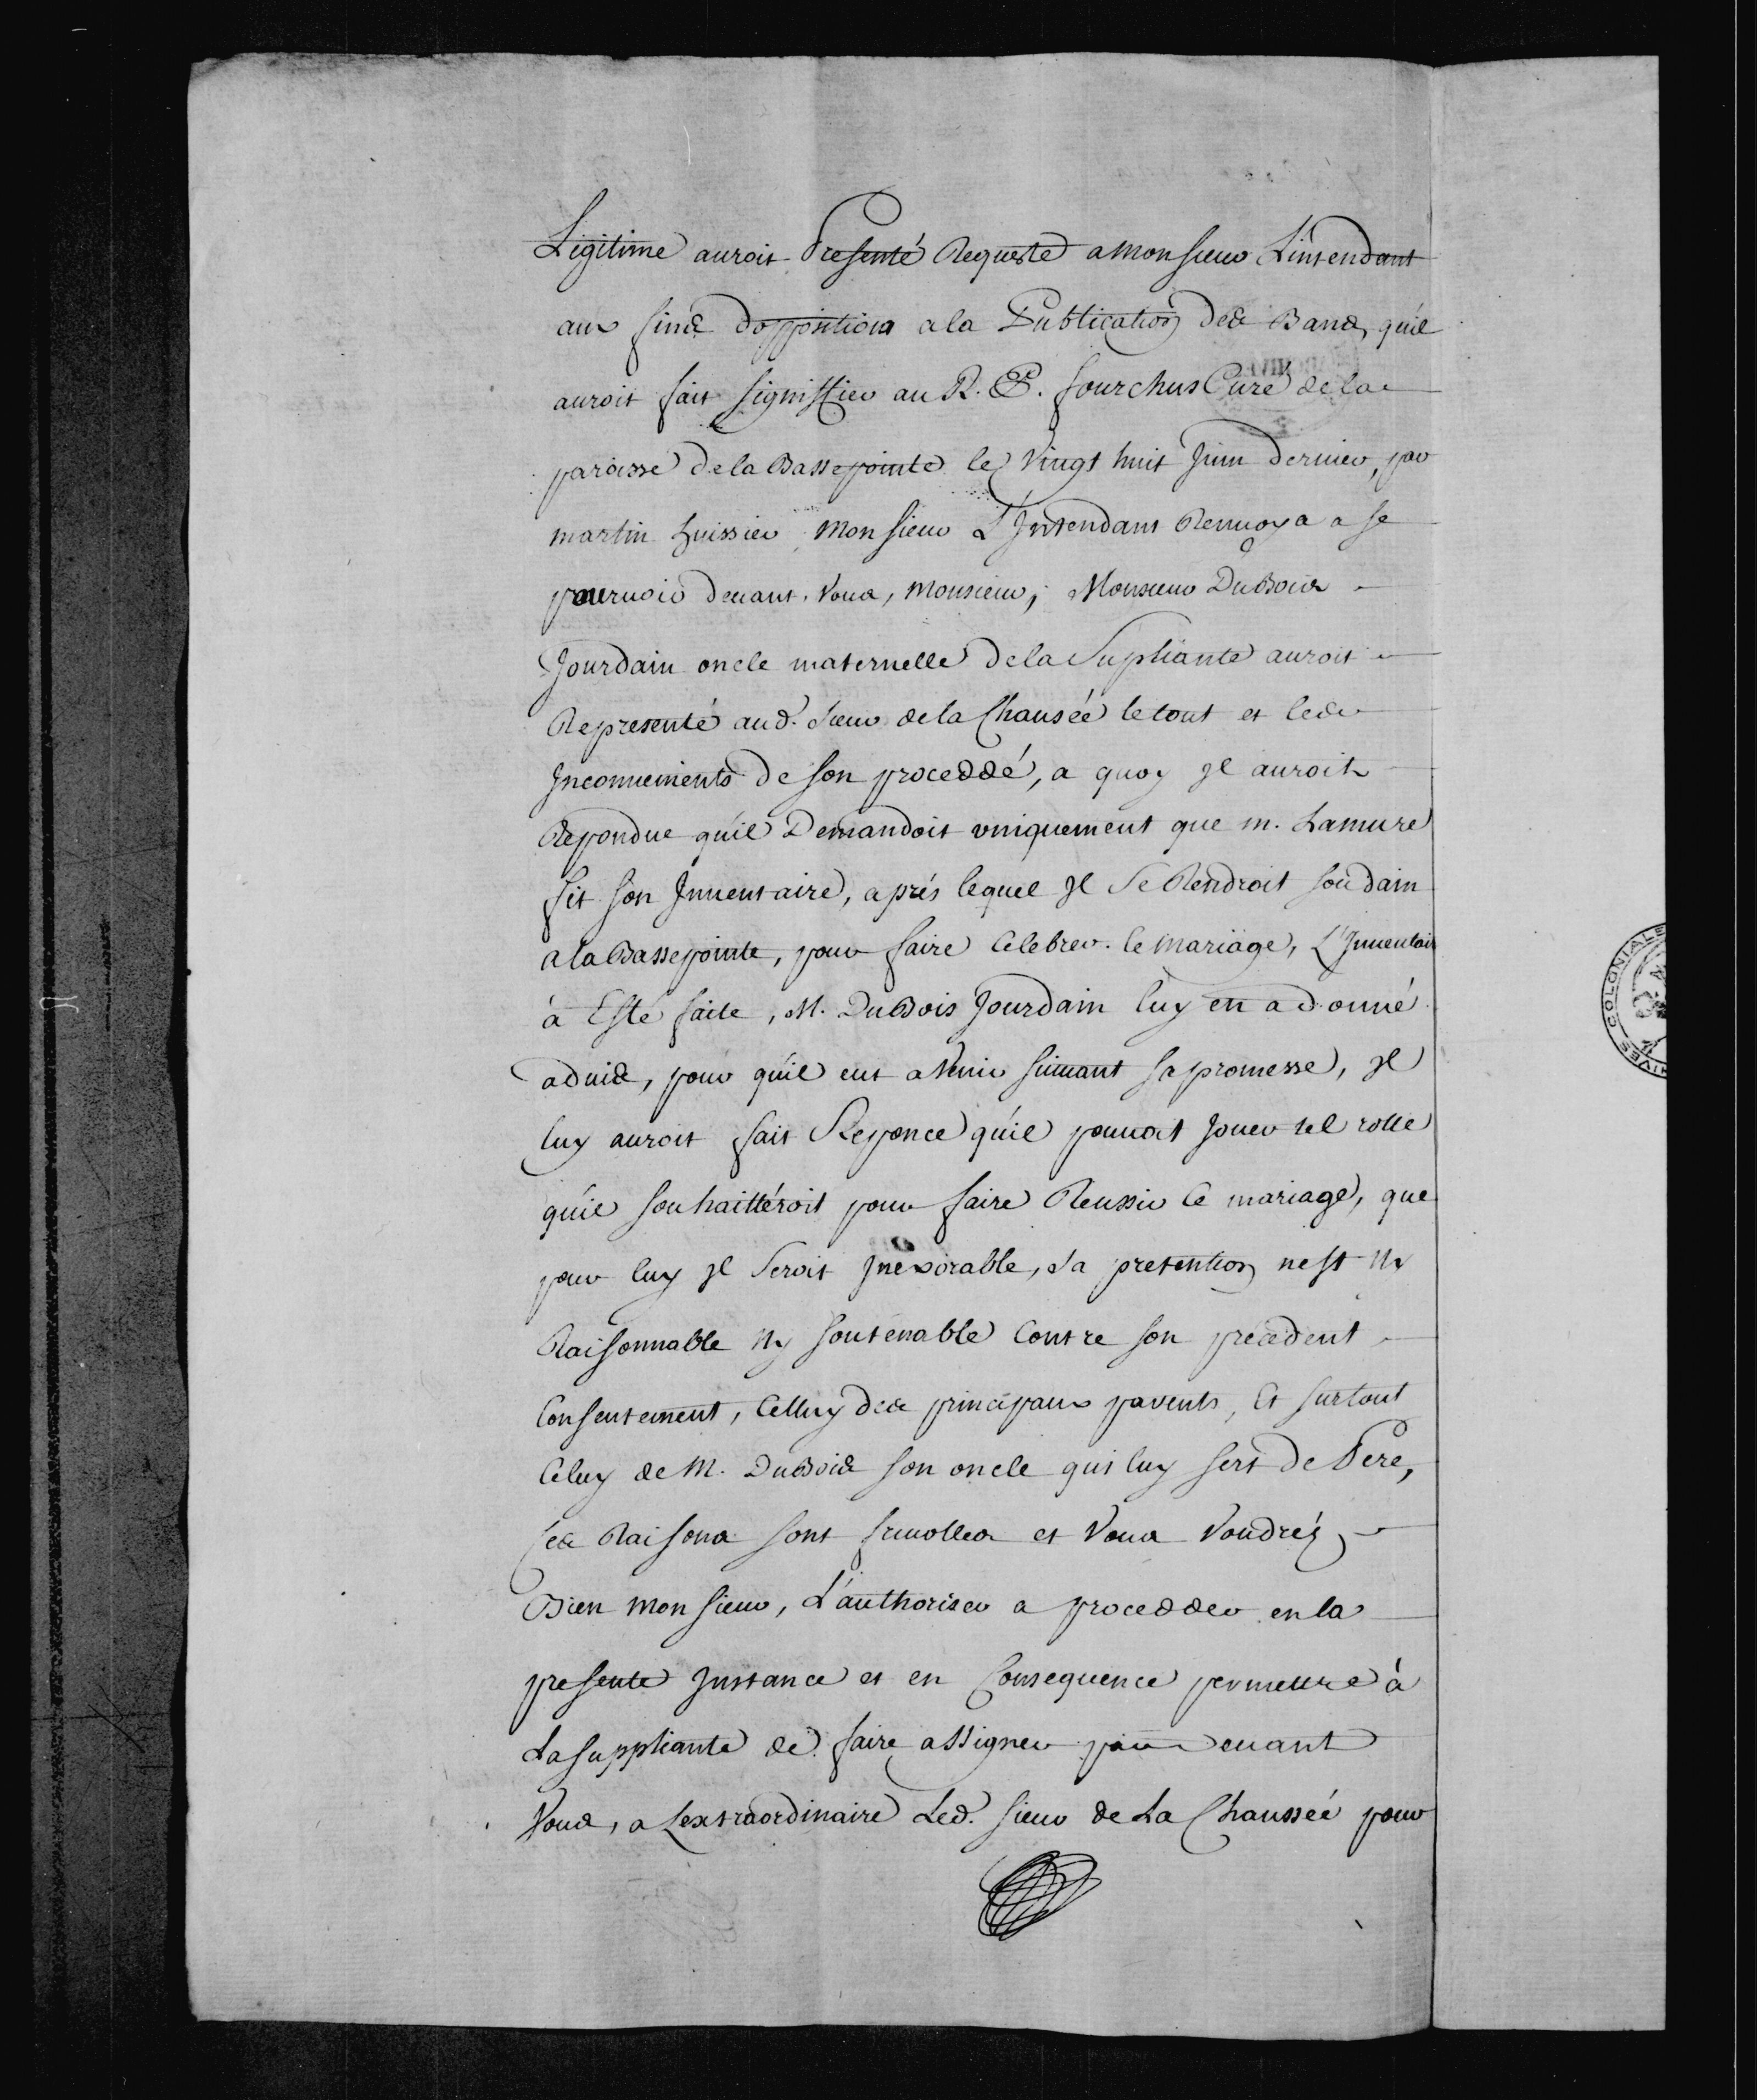 Legitime auroit Presenté Requeste a Monsieur L'intendant
aux fins d'opposition a la Publication des Bans, qu'il
auroit fait signiffier au R. P. fourchus Curé de la
paroisse de la Bassepointe le Vingt huit Juin dernier, par
martin huissier, Monsieur L'Intendant Renuoya a se
pouruoir deuant Vous, Monsieur; Monsieur DuBois
Jourdain oncle maternelle de la Supliante auroit
Representé aud. Sieur de la Chausée le tout et les
Inconuenients de son proceddé, a quoy Il auroit
Repondue qu'il Demandoit vniquement que m. Lamure
fit son Inuentaire, aprés lequel Il se Rendroit soudain
a la Bassepointe, pour faire Celebrer le mariage, L'Inuentair
à Esté faite, M. DuBois Jourdain luy en a donné
aduis, pour qu'il eut a Venir suiuant sa promesse, Il
luy auroit fait Reponce qu'il pouuoit Jouer tel rolle
qu'il souhaitteroit pour faire Reussir Ce mariage, que
pour luy Il Seroit Inexorable, Sa pretention nest Ny
Raisonnable Ny soutenable Contre son précedent
Consentement, Celluy des principaux parents, Et surtout
Celuy de M. DuBois son oncle qui luy sert de Pere,
Ces Raisons sont friuolles et Vous Voudréz
Bien Monsieur, L'authoriser a procedder en la
presente Instance et en Consequence permettre à
La suppliante de faire assigner par deuant
Vous, a L'extraordinaire Led. sieur de La Chaussée pour